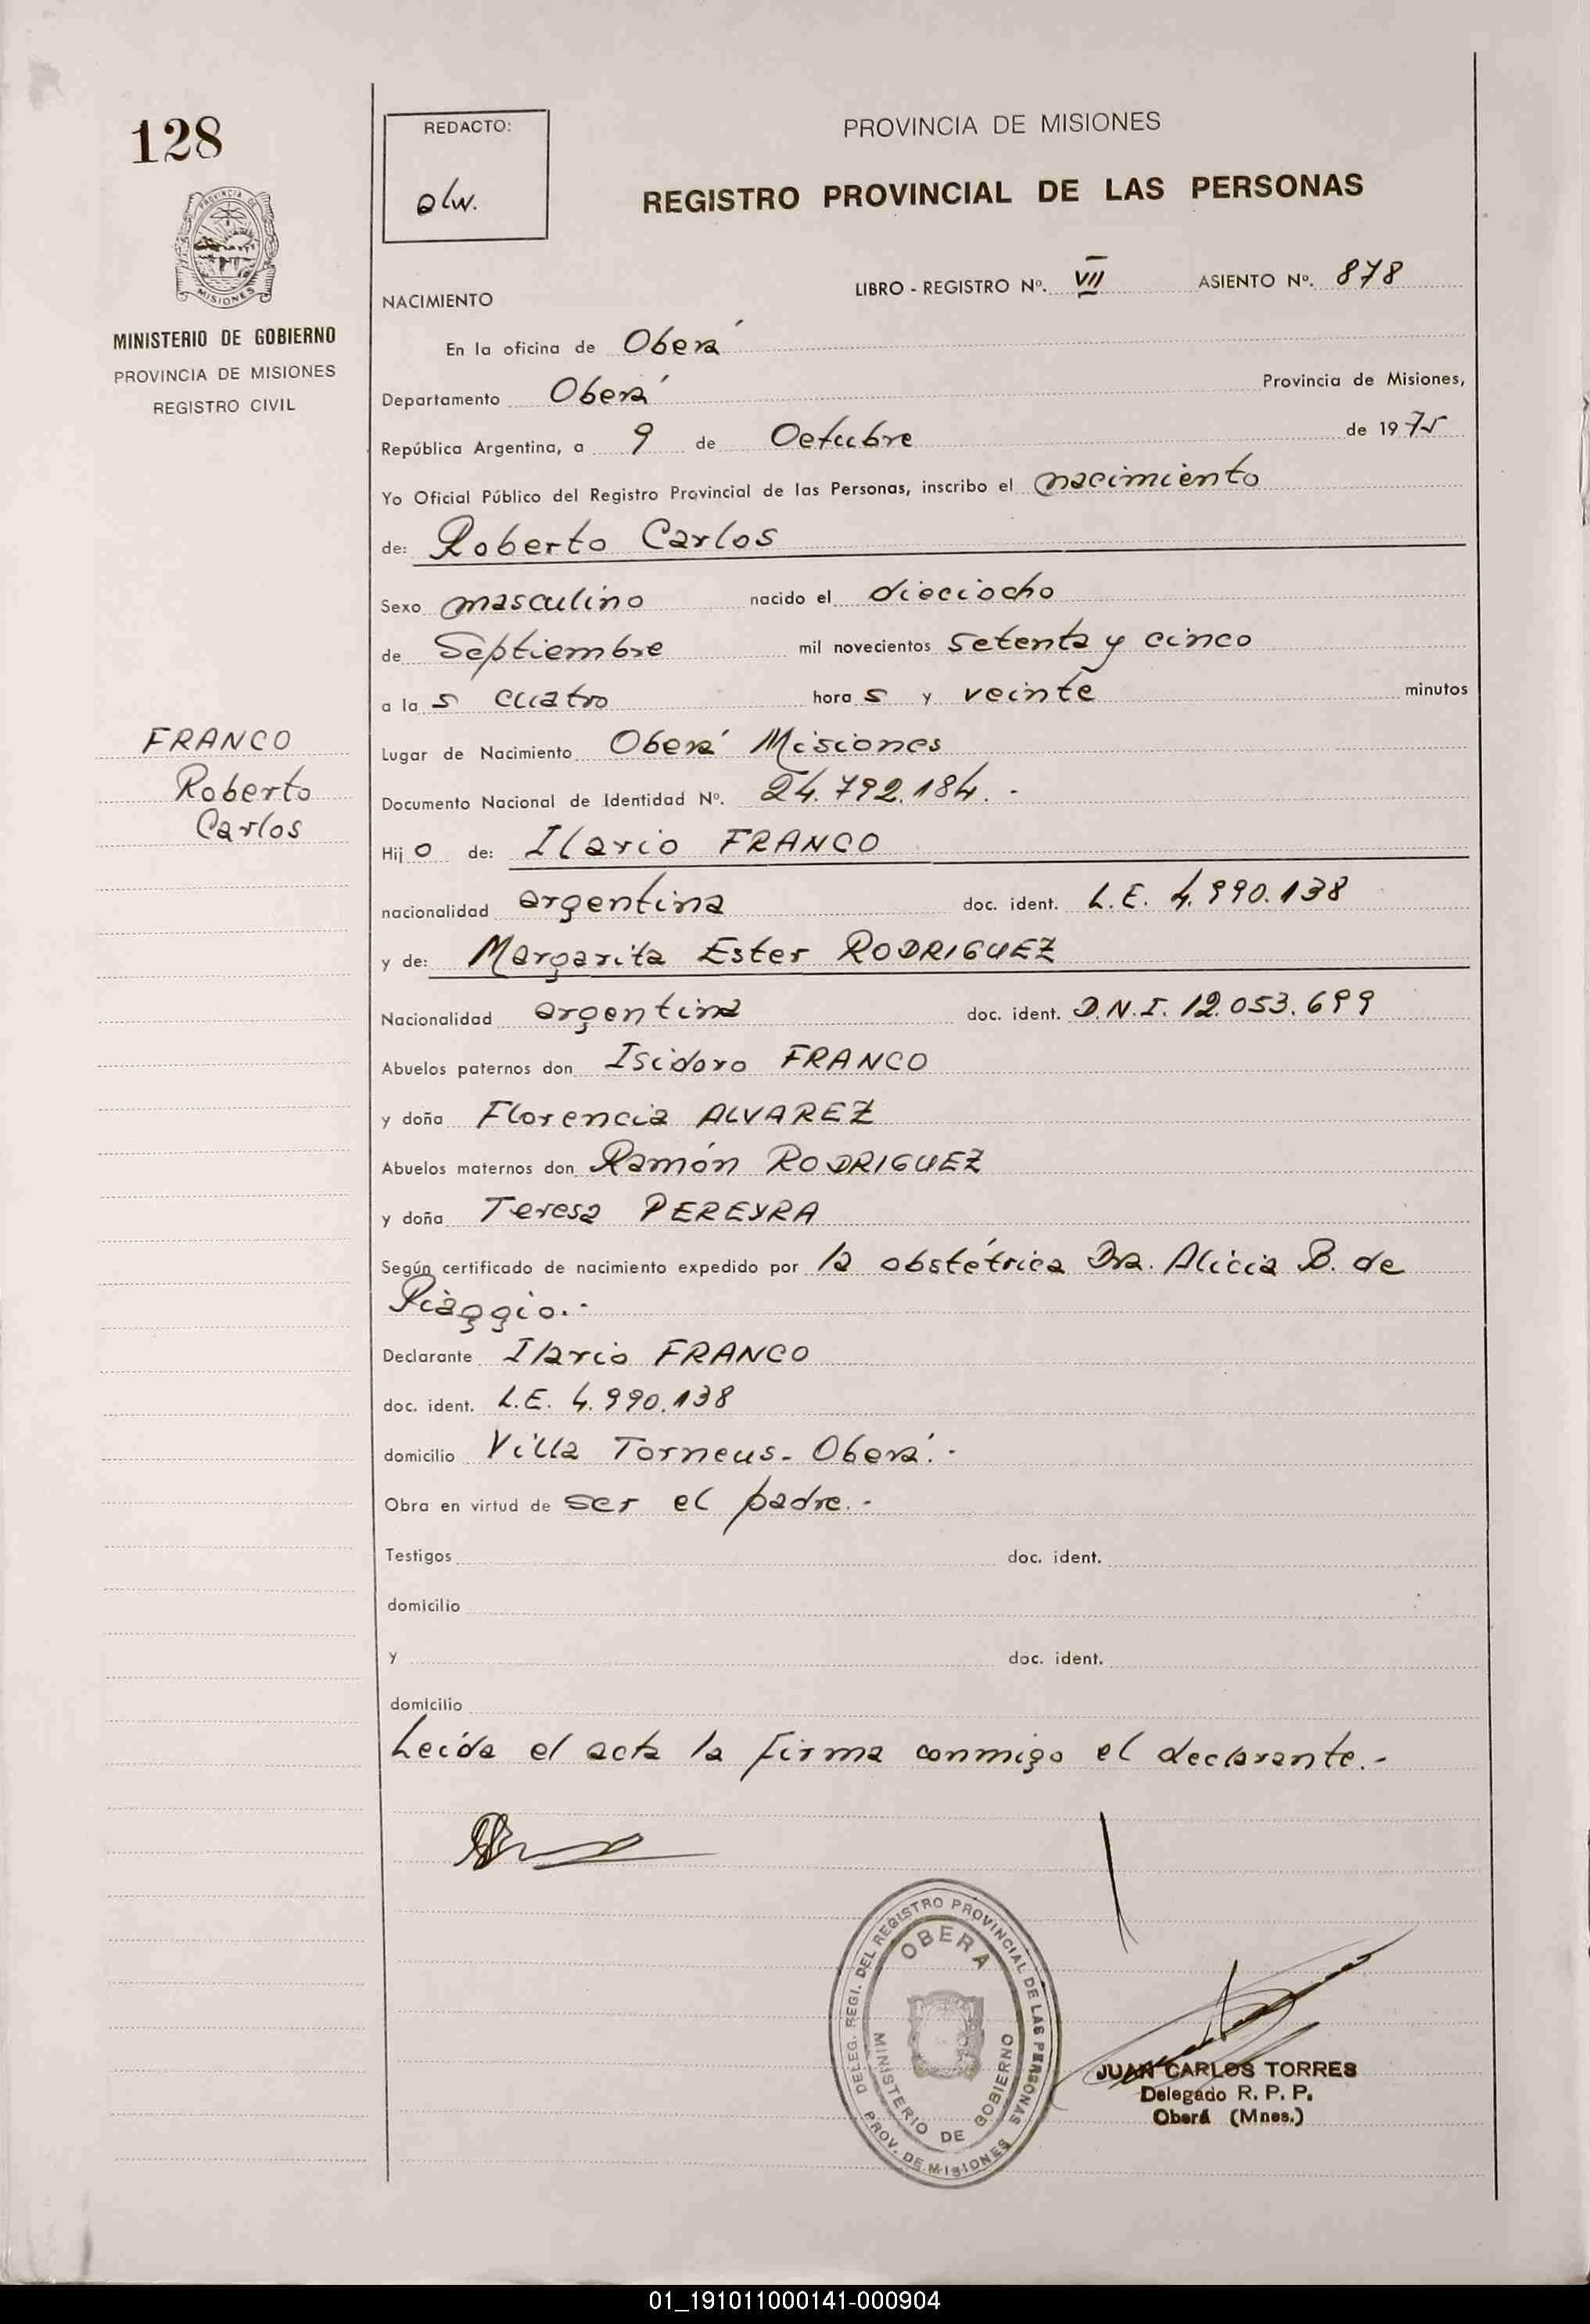 128
REDACTO:
alw.
PROVINCIA DE MISIONES
REGISTRO PROVINCIAL DE LAS PERSONAS
PROVINCIA DE
MISIONES
MINISTERIO DE GOBIERNO
PROVINCIA DE MISIONES
REGISTRO CIVIL
NACIMIENTO
LIBRO - REGISTRO Nº. VII ASIENTO Nº. 878
En la oficina de Oberá
Departamento Oberá Provincia de Misiones,
República Argentina, a 9 de Octubre de 1975
Yo Oficial Público del Registro Provincial de las Personas, inscribo el nacimiento
de: Roberto Carlos
Sexo masculino nacido el dieciocho
de Septiembre mil novecientos setenta y cinco
a la s cuatro hora s y veinte minutos
FRANCO
Roberto
Carlos
Lugar de Nacimiento Oberá Misiones
Documento Nacional de Identidad Nº. 24.792.184.-
Hij o de: Ilario FRANCO
nacionalidad argentina doc. ident. L.E. 4.990.138
y de: Margarita Ester RODRIGUEZ
Nacionalidad argentina doc. ident. D.N.I. 12.053.699
Abuelos paternos don Isidoro FRANCO
y doña Florencia ALVAREZ
Abuelos maternos don Ramón RODRIGUEZ
y doña Teresa PEREYRA
Según certificado de nacimiento expedido por la obstétrica Dra. Alicia B. de
Piaggio.-
Declarante Ilario FRANCO
doc. ident. L.E. 4.990.138
domicilio Villa Torneus - Oberá.-
Obra en virtud de ser el padre.-
Testigos doc. ident.
domicilio
y doc. ident.
domicilio
Leída el acta la firma conmigo el declarante.-
DELEG. REGI. DEL REGISTRO PROVINCIAL DE LAS PERSONAS
OBERA
MINISTERIO DE GOBIERNO
PROV. DE MISIONES
JUAN CARLOS TORRES
Delegado R. P. P.
Oberá (Mnes.)
01_191011000141-000904